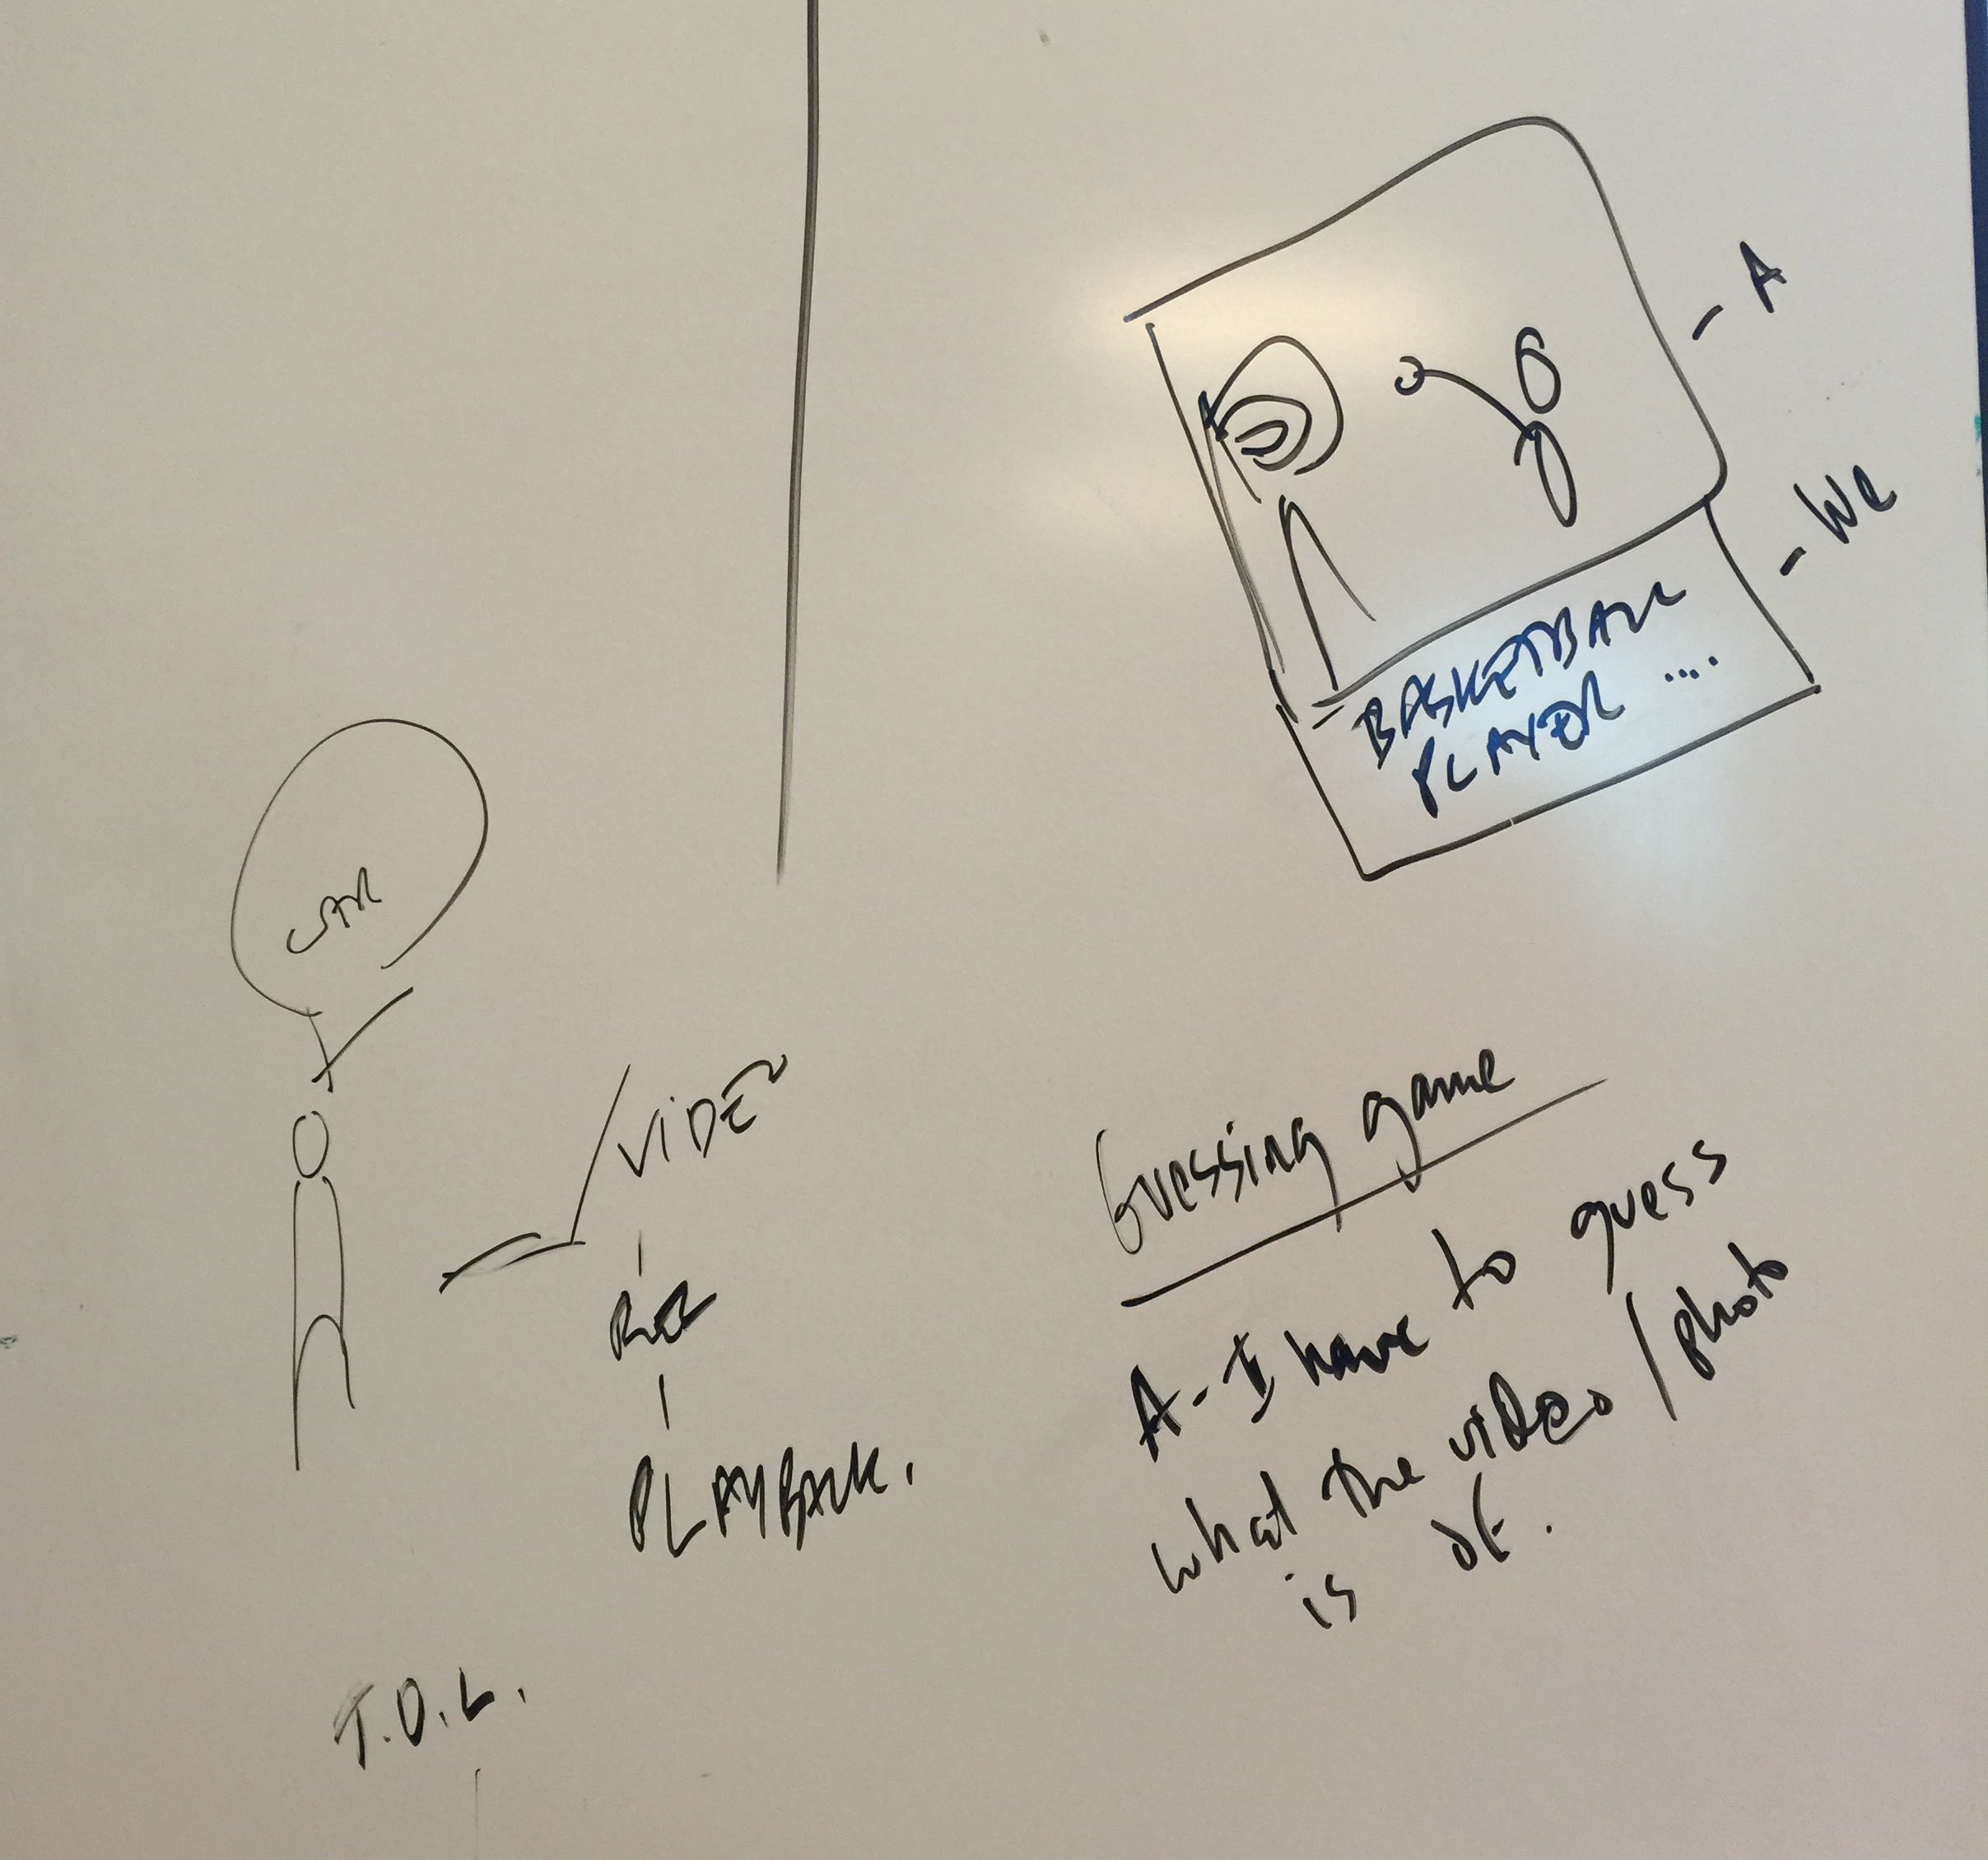 - A
- We
BASKETBALL
PLAYER ....
CAR
VIDEO
REC
PLAYBACK.
T.D.L.
Guessing game
A - I have to guess
what the video / photo
is of.